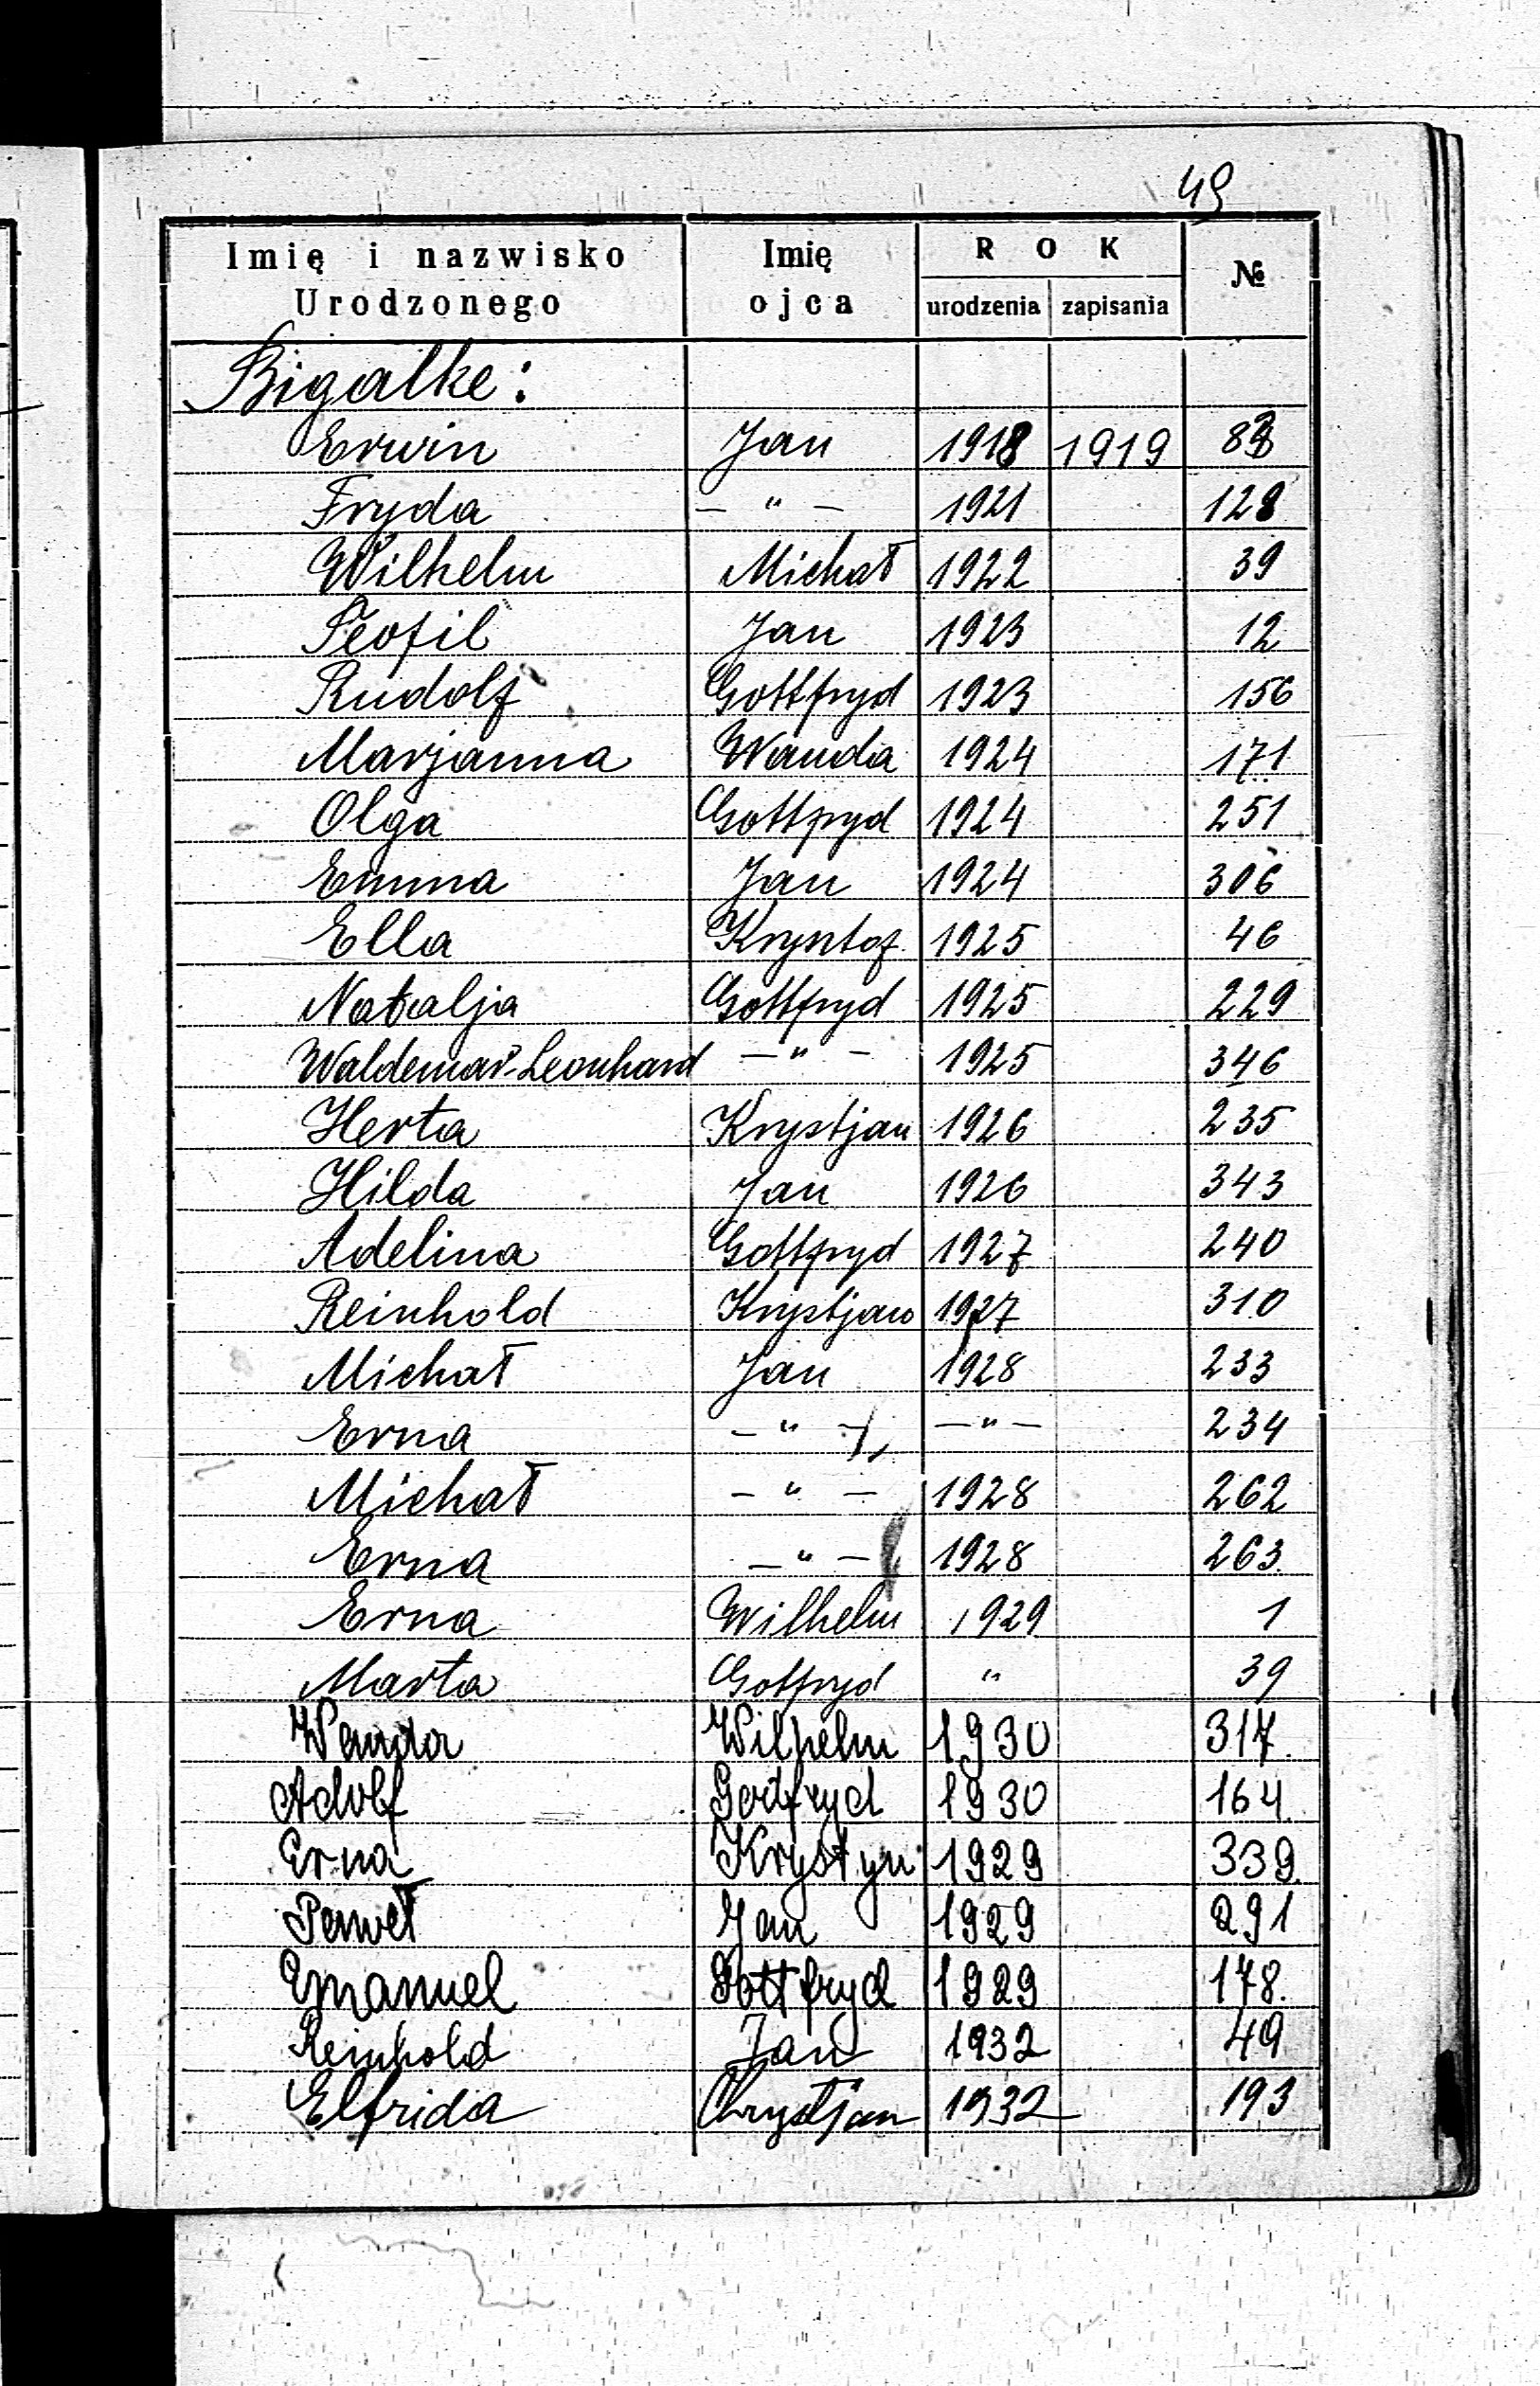 49
Imię i nazwisko Urodzonego Imię ojca ROK urodzenia zapisania №
Bigalke:
Erwin Jan 1918 1919
Fryda — " — 1921 128
Wilhelm Michał 1922 39
Teofil Jan 1923 12
Rudolf Gottfryd 1923 156
Marjanna Wanda 1924 171
Olga Gottfryd 1924 251
Emma Jan 1924 306
Ella Krystof 1925 46
Natalja Gottfryd 1925 229
Waldemar-Leonhard — " — 1925 346
Herta Krystjan 1926 235
Hilda Jan 1926 343
Adelina Gottfryd 1927 240
Reinhold Krystjan 1927 310
Michał Jan 1928 233
Erna — " — — " — 234
Michał — " — 1928 262
Erna — " — 1928 263
Erna Wilhelm 1929 1
Marta Gotfryd " 39
Wanda Wilhelm 1930 317
Adolf Gotfryd 1930 164
Erna Krystyn 1929 339
Paweł Jan 1929 291
Emanuel Gottfryd 1929 178
Reinhold Jan 1932 49
Elfrida Chrystjan 1932 193